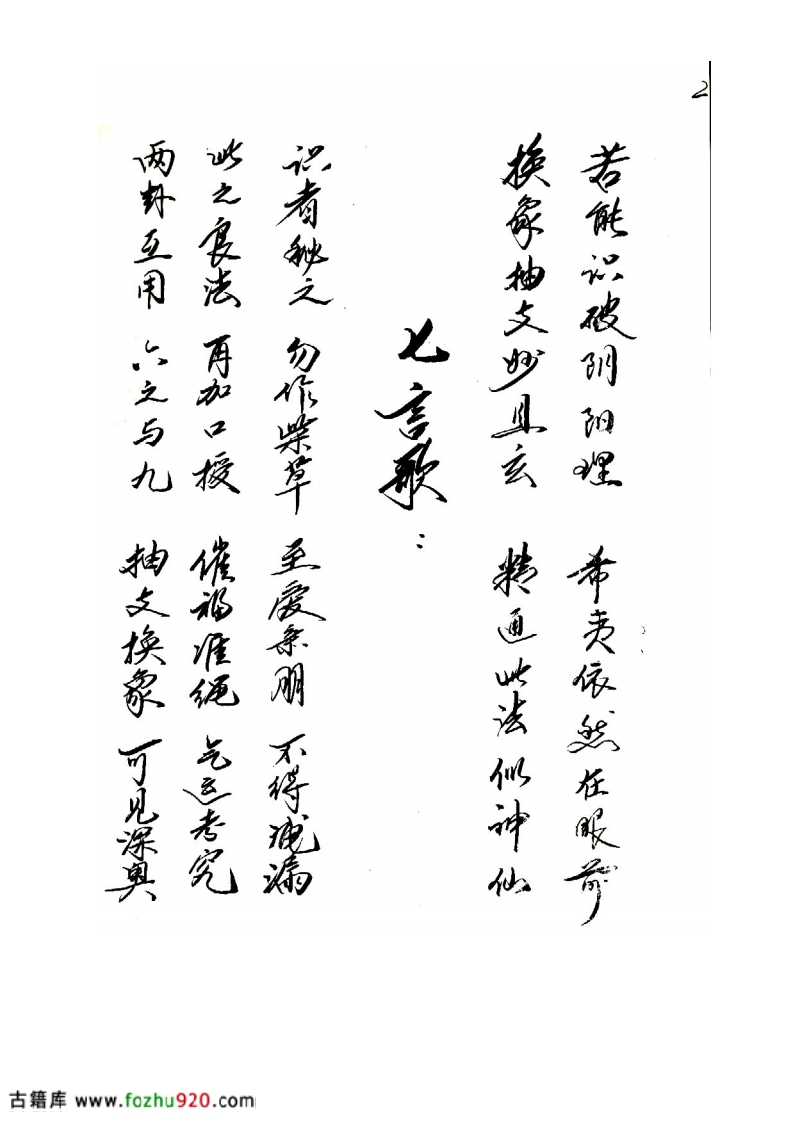 2
两卦互用 六之与九 抽爻换象 可见深奥
此之良法 再加口授 催福准绳 气运考究
识者秘之 勿作柴草 至爱亲朋 不得洩漏
七言歌：
换象抽爻妙且玄 精通此法似神仙
若能识破阴阳理 希夷依然在眼前
古籍库 www.fozhu920.com